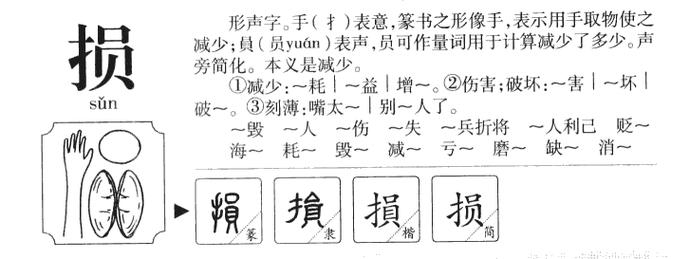 损
sǔn
形声字。手(扌)表意,篆书之形像手,表示用手取物使之
减少;員(员yuán)表声,员可作量词用于计算减少了多少。声
旁简化。本义是减少。
①减少:～耗｜～益｜增～。②伤害;破坏:～害｜～坏｜
破～。③刻薄:嘴太～｜别～人了。
～毁 ～人 ～伤 ～失 ～兵折将 ～人利己 贬～
海～ 耗～ 毁～ 减～ 亏～ 磨～ 缺～ 消～
損 篆 損 隶 損 楷 损 简